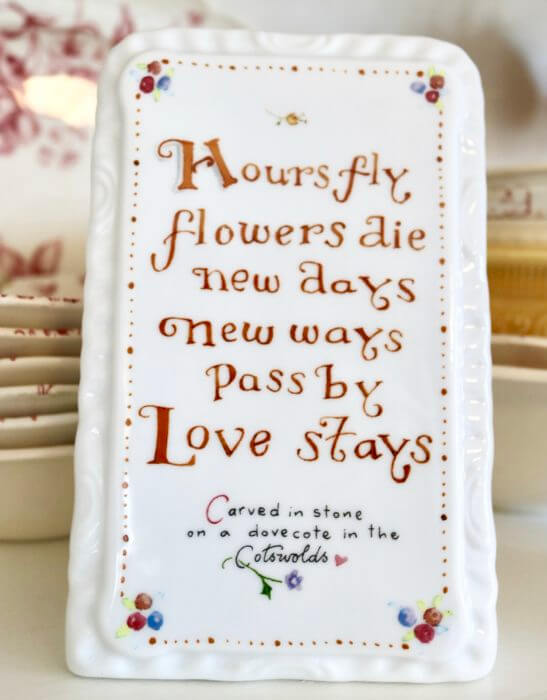 Hours fly
flowers die
new days
new ways
pass by
Love stays
Carved in stone
on a dovecote in the
Cotswolds